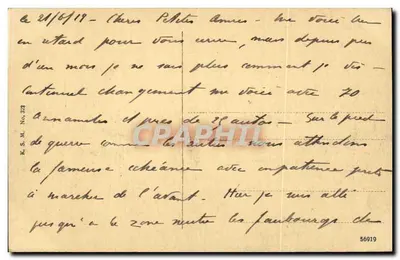 le 21/6/19 - Chères Petites Amies - Me voici bien
en retard pour vous écrire, mais depuis près
d'un mois je ne sais plus comment je vis -
Continuel changement me voici avec 20
Annamites et près de 25 autos - Sur le pied
de guerre comme les autres nous attendons
la fameuse échéance avec impatience prêts
à marcher de l'avant. Hier je suis allé
jusqu'à la zone neutre les faubourgs de
K. S. M. No. 323
CPAPHIL
56919